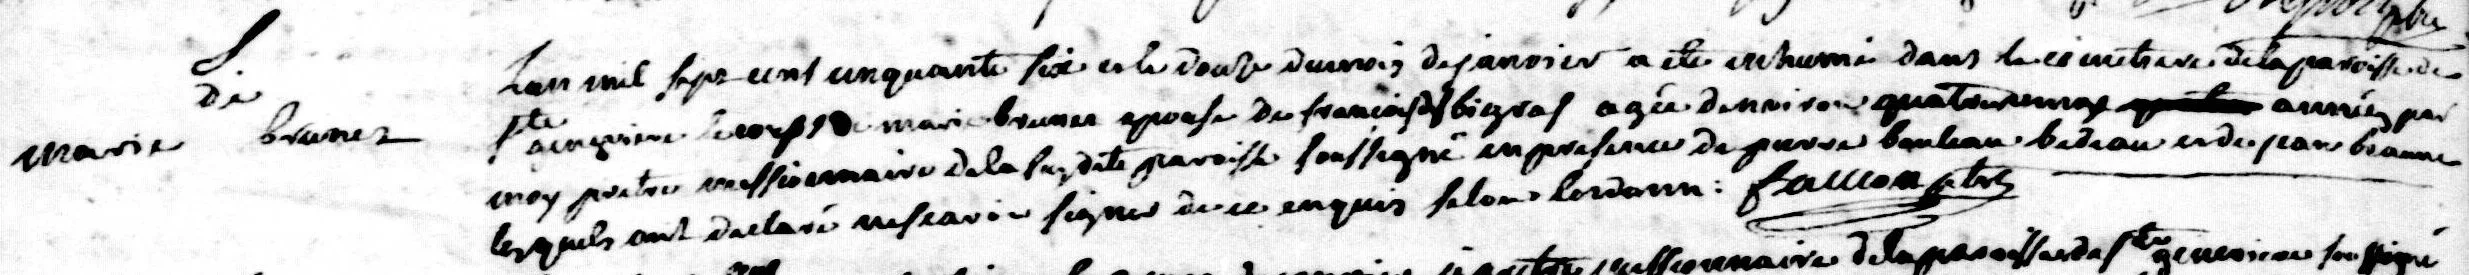 S
de
marie brunet
Lan mil sept cent cinquante six et le douze du mois de janvier a ete inhumé dans le cimetiere de la paroisse de
Ste genevieve le corps de marie brunet epouse de francois bigras agée denviron quatrevingt années par
moy pretre missionnaire de la susdite paroisse soussigné en presence de pierre bauleau bedeau et de jean braune
lesquels ont declaré ne scavoir signer de ce enquis selon lordonn: faucon ptre
pretre missionnaire de la paroisse de Ste genevieve soussigné